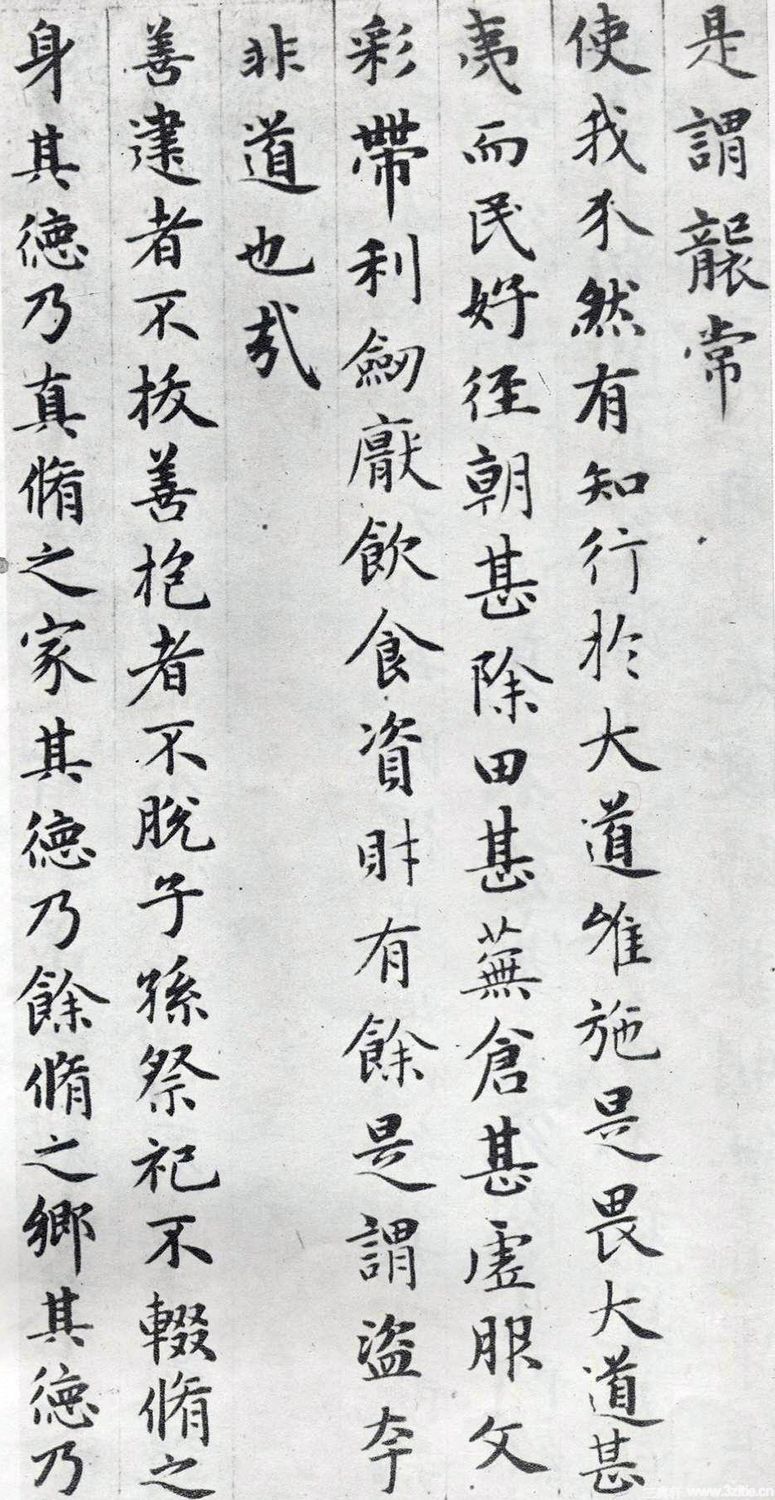 是謂襲常
使我介然有知行於大道唯施是畏大道甚
夷而民好徑朝甚除田甚蕪倉甚虛服文
彩帶利劒厭飲食資財有餘是謂盜夸
非道也哉
善建者不拔善抱者不脫子孫祭祀不輟脩之
身其德乃真脩之家其德乃餘脩之鄉其德乃
www.3zitie.cn